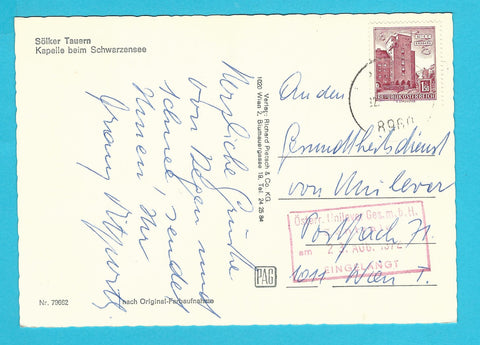 Sölker Tauern
Kapelle beim Schwarzensee
Herzliche Grüße
von Regen und
Schnee, sendet
Ihnen, Ihr
Franz
Verlag: Richard Pietsch & Co. KG
1020 Wien 2, Blumauergasse 19, Tel. 24 25 84
PAG
Nr. 79662
nach Original-Farbaufnahme
REPUBLIK ÖSTERREICH
1.80
8960
An den
Gesundheitsdienst
von Unilever
Postfach 71
1011 Wien I.
Österr. Unilever Ges.m.b.H.
am
AUG. 1972
EINGELANGT